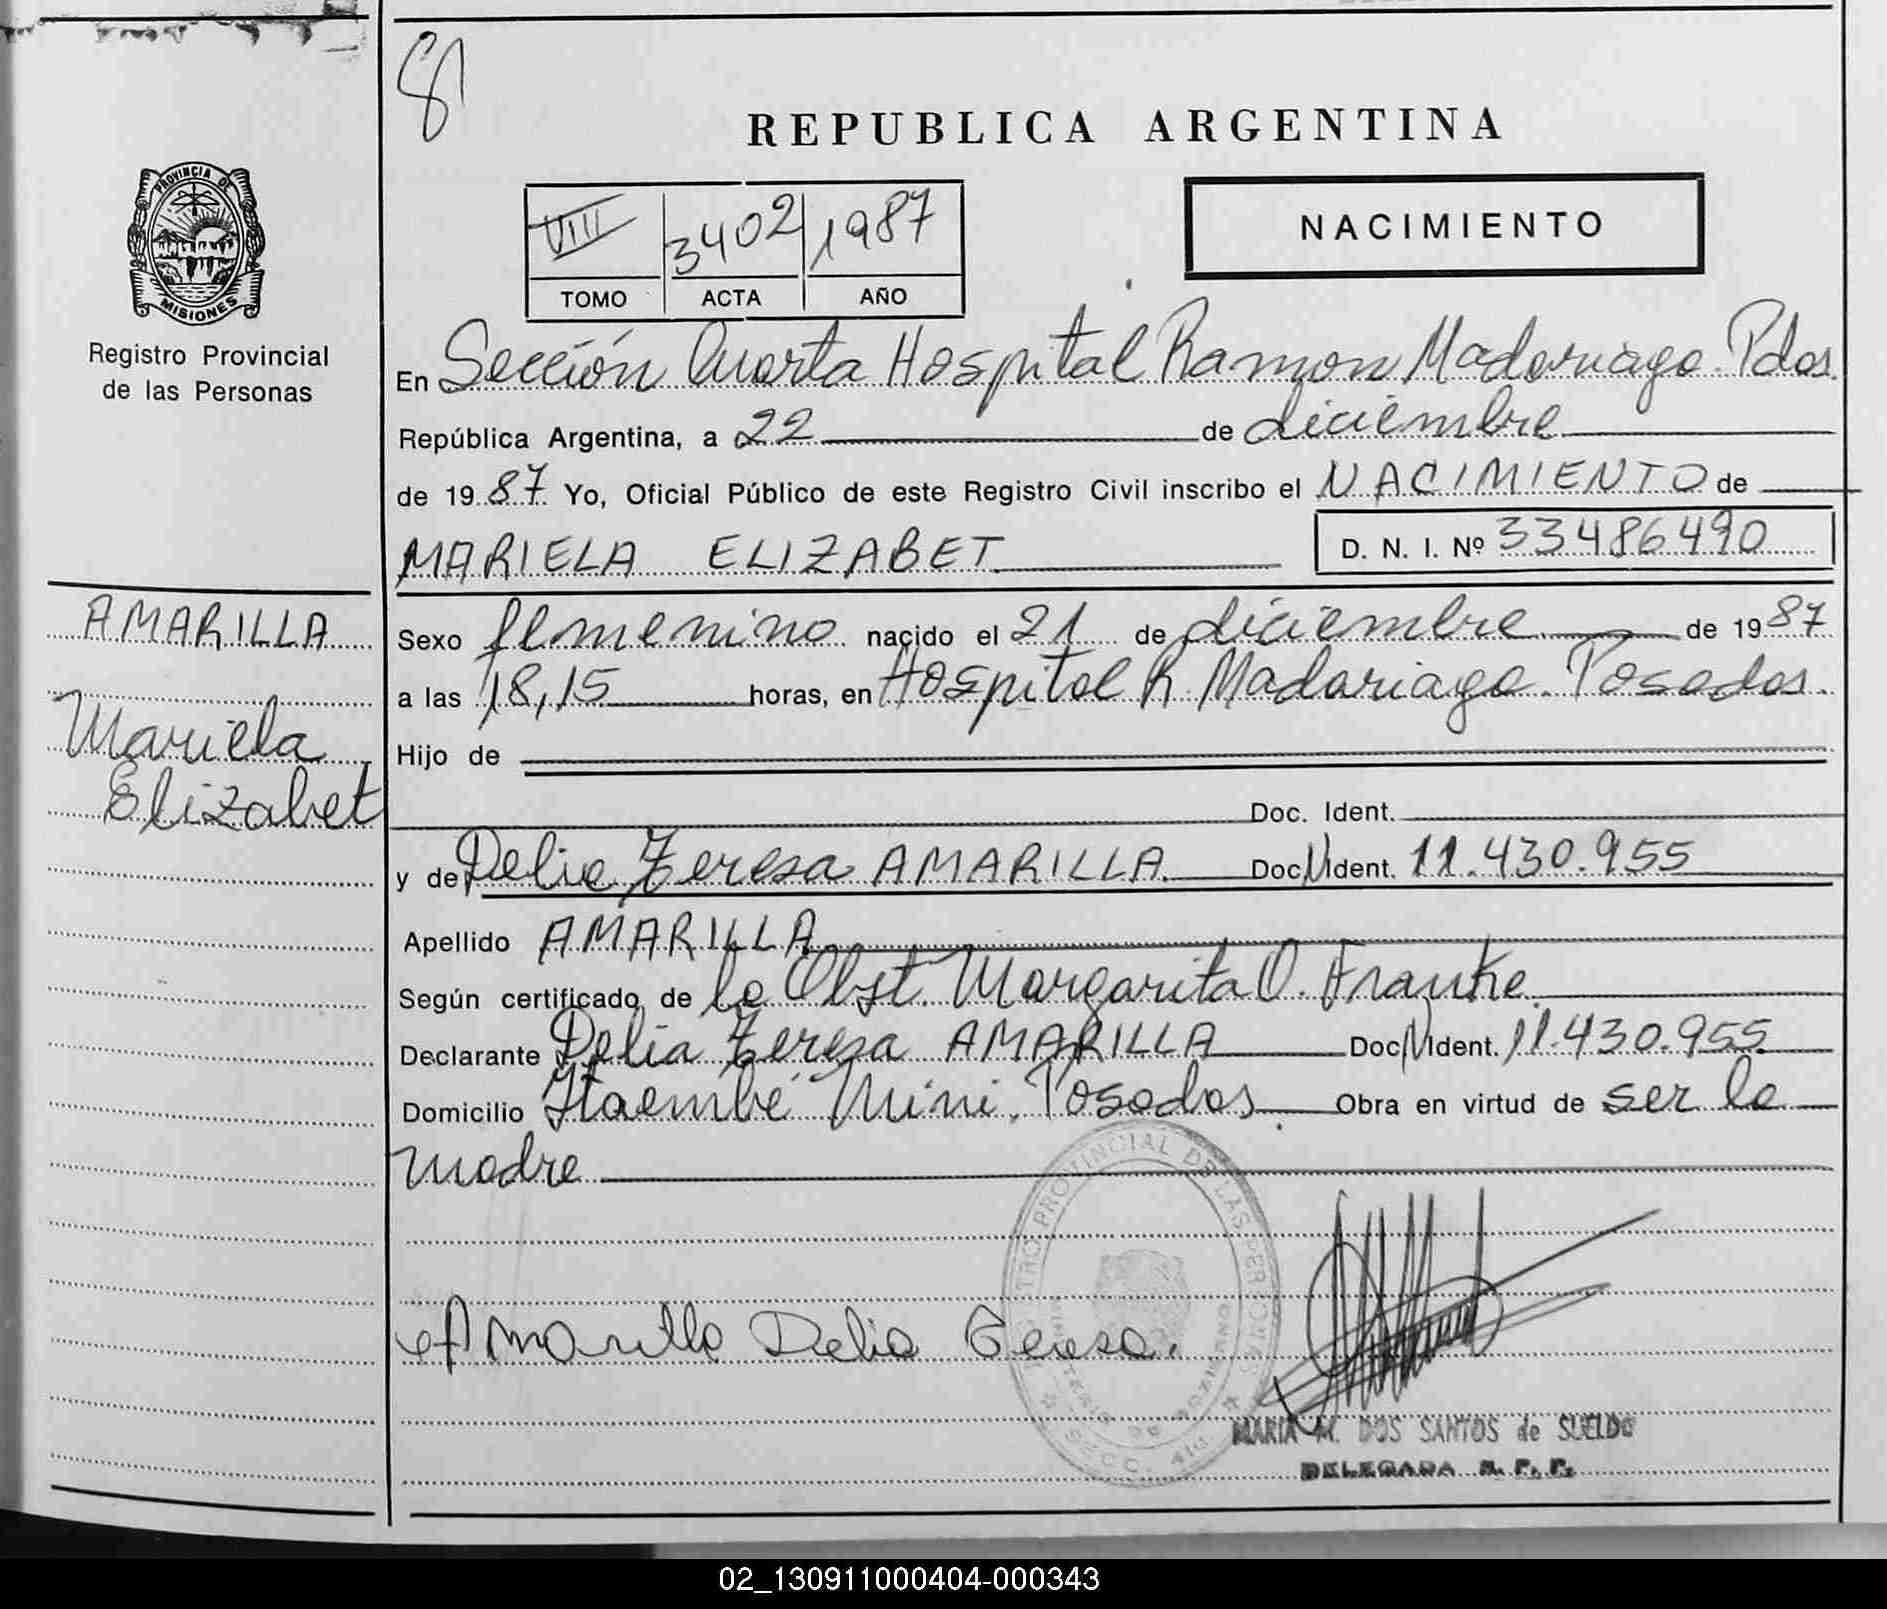 8
REPUBLICA ARGENTINA
PROVINCIA DE
MISIONES
Registro Provincial
de las Personas
VIII 3402 1987
TOMO ACTA AÑO
NACIMIENTO
En Sección Cuarta Hospital Ramon Madariaga. Pdas.
República Argentina, a 22 de diciembre
de 1987 Yo, Oficial Público de este Registro Civil inscribo el NACIMIENTO de
MARIELA ELIZABET D. N. I. Nº 33486490
AMARILLA
Mariela
Elizabet
Sexo femenino nacido el 21 de diciembre de 1987
a las 18,15 horas, en Hospital R. Madariaga. Posadas.
Hijo de
Doc. Ident.
y de Delia Teresa AMARILLA Doc. Ident. 11.430.955
Apellido AMARILLA
Según certificado de la Obst. Margarita O. Franke.
Declarante Delia Teresa AMARILLA Doc. Ident. 11.430.955
Domicilio Itaembé Mini. Posadas Obra en virtud de ser la
madre
REGISTRO PROVINCIAL DE LAS PERSONAS
Amarilla Delia Teresa.
MARIA M. DOS SANTOS de SUELDO
DELEGADA R. P. P.
02_130911000404-000343